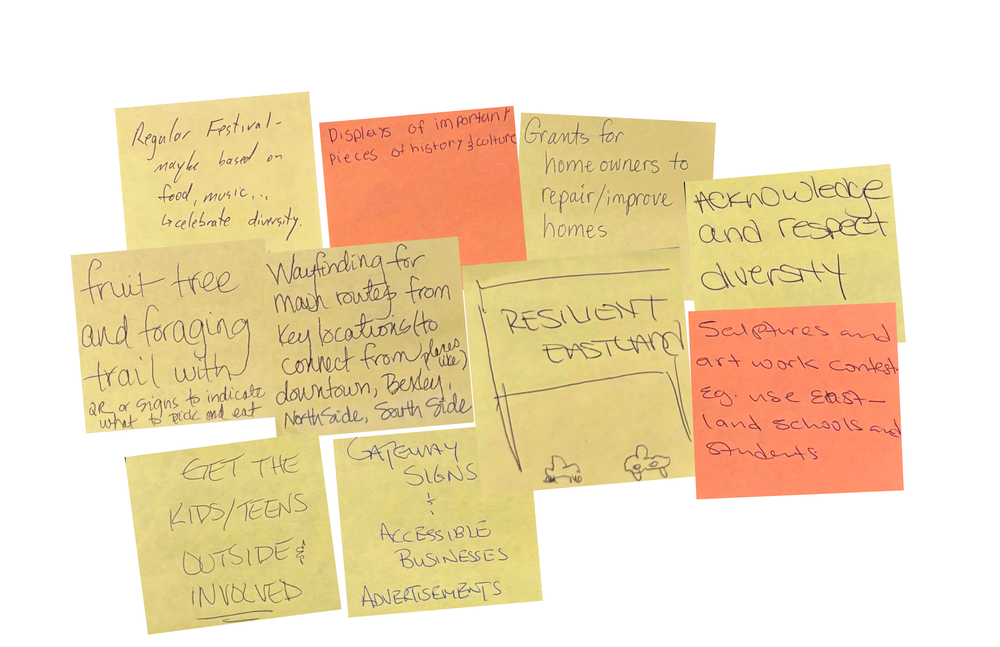 Regular Festival-
maybe based on
food, music,..
↳celebrate diversity.
Displays of important
pieces of history & culture
Grants for
home owners to
repair/improve
homes
ACKNOWledge
and respect
diversity
fruit tree
and foraging
trail with
QR or signs to indicate
what to pick and eat
Wayfinding for
main routes from
key locations (to
connect from places like)
downtown, Bexley,
North Side, South Side
RESILIENT
EASTLAND
Sculptures and
art work contest.
Eg. use East-
land schools and
students
GET THE
KIDS/TEENS
OUTSIDE &
INVOLVED
GATEWAY
SIGNS
&
ACCESSIBLE
BUSINESSES
ADVERTISEMENTS